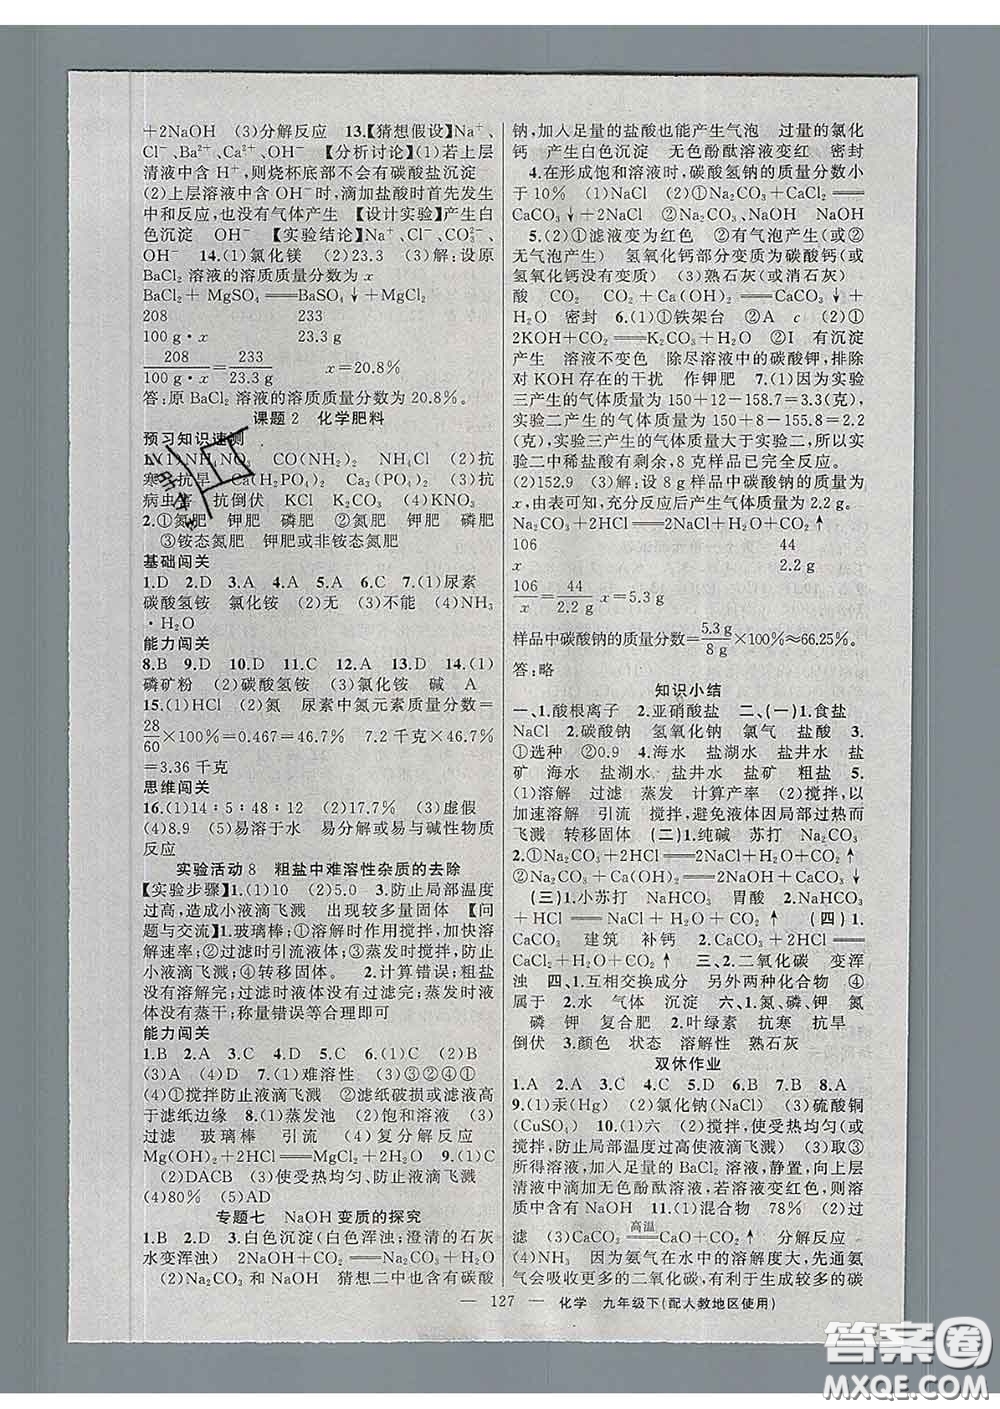 +2NaOH (3)分解反应 13.【猜想假设】Na⁺、
Cl⁻、Ba²⁺、Ca²⁺、OH⁻ 【分析讨论】(1)若上层
清液中含 H⁺,则烧杯底部不会有碳酸盐沉淀
(2)上层溶液中含 OH⁻时,滴加盐酸时首先发生
中和反应,也没有气体产生 【设计实验】产生白
色沉淀 OH⁻ 【实验结论】Na⁺、Cl⁻、CO₃²⁻、
OH⁻ 14.(1)氯化镁 (2)23.3 (3)解:设原
BaCl₂ 溶液的溶质质量分数为 x
BaCl₂ + MgSO₄══BaSO₄↓+ MgCl₂
208 233
100 g · x 23.3 g
208/(100 g · x)=233/23.3 g x=20.8%
答:原 BaCl₂ 溶液的溶质质量分数为 20.8%。
课题 2 化学肥料
预习知识速测
1.(1)NH₄NO₃ CO(NH₂)₂ NH₄Cl (2)抗
寒 抗旱 Ca(H₂PO₄)₂ Ca₃(PO₄)₂ (3)抗
病虫害 抗倒伏 KCl K₂CO₃ (4)KNO₃
2.①氮肥 钾肥 磷肥 ②氮肥 钾肥 磷肥
③铵态氮肥 钾肥或非铵态氮肥
基础闯关
1.D 2.D 3.A 4.A 5.A 6.C 7.(1)尿素
碳酸氢铵 氯化铵 (2)无 (3)不能 (4)NH₃
· H₂O
能力闯关
8.B 9.D 10.D 11.C 12.A 13.D 14.(1)
磷矿粉 (2)碳酸氢铵 (3)氯化铵 碱 A
15.(1)HCl (2)氮 尿素中氮元素质量分数=
28/60×100%=0.467=46.7% 7.2 千克×46.7%
=3.36 千克
思维闯关
16.(1)14∶5∶48∶12 (2)17.7% (3)虚假
(4)8.9 (5)易溶于水 易分解或易与碱性物质
反应
实验活动 8 粗盐中难溶性杂质的去除
【实验步骤】1.(1)10 (2)5.0 3.防止局部温度
过高,造成小液滴飞溅 出现较多量固体 【问
题与交流】1.玻璃棒:①溶解时作用搅拌,加快溶
解速率;②过滤时引流液体;③蒸发时搅拌,防止
小液滴飞溅;④转移固体。 2.计算错误;粗盐
没有溶解完;过滤时液体没有过滤完;蒸发时液
体没有蒸干;称量错误等合理即可
能力闯关
1.B 2.A 3.B 4.C 5.(1)C (2)B
(3)A (4)D 6.(1)难溶性 (3)③②④①
(4)①搅拌引起液滴飞溅 ②滤纸破损或液面高
于滤纸边缘 8.(1)蒸发池 (2)饱和溶液 (3)
过滤 玻璃棒 引流 (4)复分解反应
Mg(OH)₂+2HCl══MgCl₂+2H₂O 9.(1)C
(2)DACB (3)使受热均匀、防止液滴飞溅
(4)80% (5)AD
专题七 NaOH 变质的探究
1.B 2.D 3.白色沉淀(白色浑浊;澄清的石灰
水变浑浊) 2NaOH+CO₂══Na₂CO₃+H₂O
(2)Na₂CO₃ 和 NaOH 猜想二中也含有碳酸
钠,加入足量的盐酸也能产生气泡 过量的氯化
钙 产生白色沉淀 无色酚酞溶液变红 密封
4.在形成饱和溶液时,碳酸氢钠的质量分数小
于 10% (1)NaCl (2)①Na₂CO₃+CaCl₂══
CaCO₃↓+2NaCl ②Na₂CO₃、NaOH NaOH
5.(2)①滤液变为红色 ②有气泡产生(或②
无气泡产生) 氢氧化钙部分变质为碳酸钙(或
氢氧化钙没有变质) (3)熟石灰(或消石灰)
酸 CO₂ CO₂+Ca(OH)₂══CaCO₃↓+
H₂O 密封 6.(1)①铁架台 ②A c (2)①
2KOH+CO₂══K₂CO₃+H₂O ②Ⅰ 有沉淀
产生 溶液不变色 除尽溶液中的碳酸钾,排除
对 KOH 存在的干扰 作钾肥 7.(1)因为实验
三产生的气体质量为 150+12-158.7=3.3(克),
实验二产生的气体质量为 150+8-155.8=2.2
(克),实验三产生的气体质量大于实验二,所以实
验二中稀盐酸有剩余,8 克样品已完全反应。
(2)152.9 (3)解:设 8g 样品中碳酸钠的质量为
x,由表可知,充分反应后产生气体质量为 2.2 g。
Na₂CO₃+2HCl══2NaCl+H₂O+CO₂↑
106 44
x 2.2 g
106/x=44/2.2 g x=5.3 g
样品中碳酸钠的质量分数=5.3 g/8 g×100%≈66.25%。
答:略
知识小结
一、1.酸根离子 2.亚硝酸盐 二、(一)1.食盐
NaCl 2.碳酸钠 氢氧化钠 氯气 盐酸 3.
①选种 ②0.9 4.海水 盐湖水 盐井水 盐
矿 海水 盐湖水 盐井水 盐矿 粗盐 5.
(1)溶解 过滤 蒸发 计算产率 (2)搅拌,以
加速溶解 引流 搅拌,避免液体因局部过热而
飞溅 转移固体 (二)1.纯碱 苏打 Na₂CO₃
2.①Na₂CO₃+2HCl══2NaCl+H₂O+CO₂↑
②Na₂CO₃+Ca(OH)₂══CaCO₃↓+2NaOH
(三)1.小苏打 NaHCO₃ 胃酸 2.NaHCO₃
+ HCl══NaCl + H₂O + CO₂↑ (四)1.
CaCO₃ 建筑 补钙 2.CaCO₃+2HCl══
CaCl₂+H₂O+CO₂↑ 三、2.二氧化碳 变浑
浊 四、1.互相交换成分 另外两种化合物 ④
属于 2.水 气体 沉淀 六、1.氮、磷、钾 氮
磷 钾 复合肥 2.叶绿素 抗寒 抗旱
倒伏 3.颜色 状态 溶解性 熟石灰
双休作业
1.A 2.C 3.D 4.C 5.D 6.D 7.B 8.A
9.(1)汞(Hg) (2)氯化钠(NaCl) (3)硫酸铜
(CuSO₄) 10.(1)六 (2)搅拌,使受热均匀(或
搅拌,防止局部温度过高使液滴飞溅) (3)取③
所得溶液,加入足量的 BaCl₂ 溶液,静置,向上层
清液中滴加无色酚酞溶液,若溶液变红色,则原
溶质中含有 NaOH 11.(1)混合物 78% (2)过
滤 (3)CaCO₃ 高温══CaO+CO₂↑ 分解反应
(4)NH₃ 因为氨气在水中的溶解度大,先通氨
气会吸收更多的二氧化碳,有利于生成较多的碳
— 127 — 化学 九年级下(配人教地区使用)
答案圈
MXQE.COM